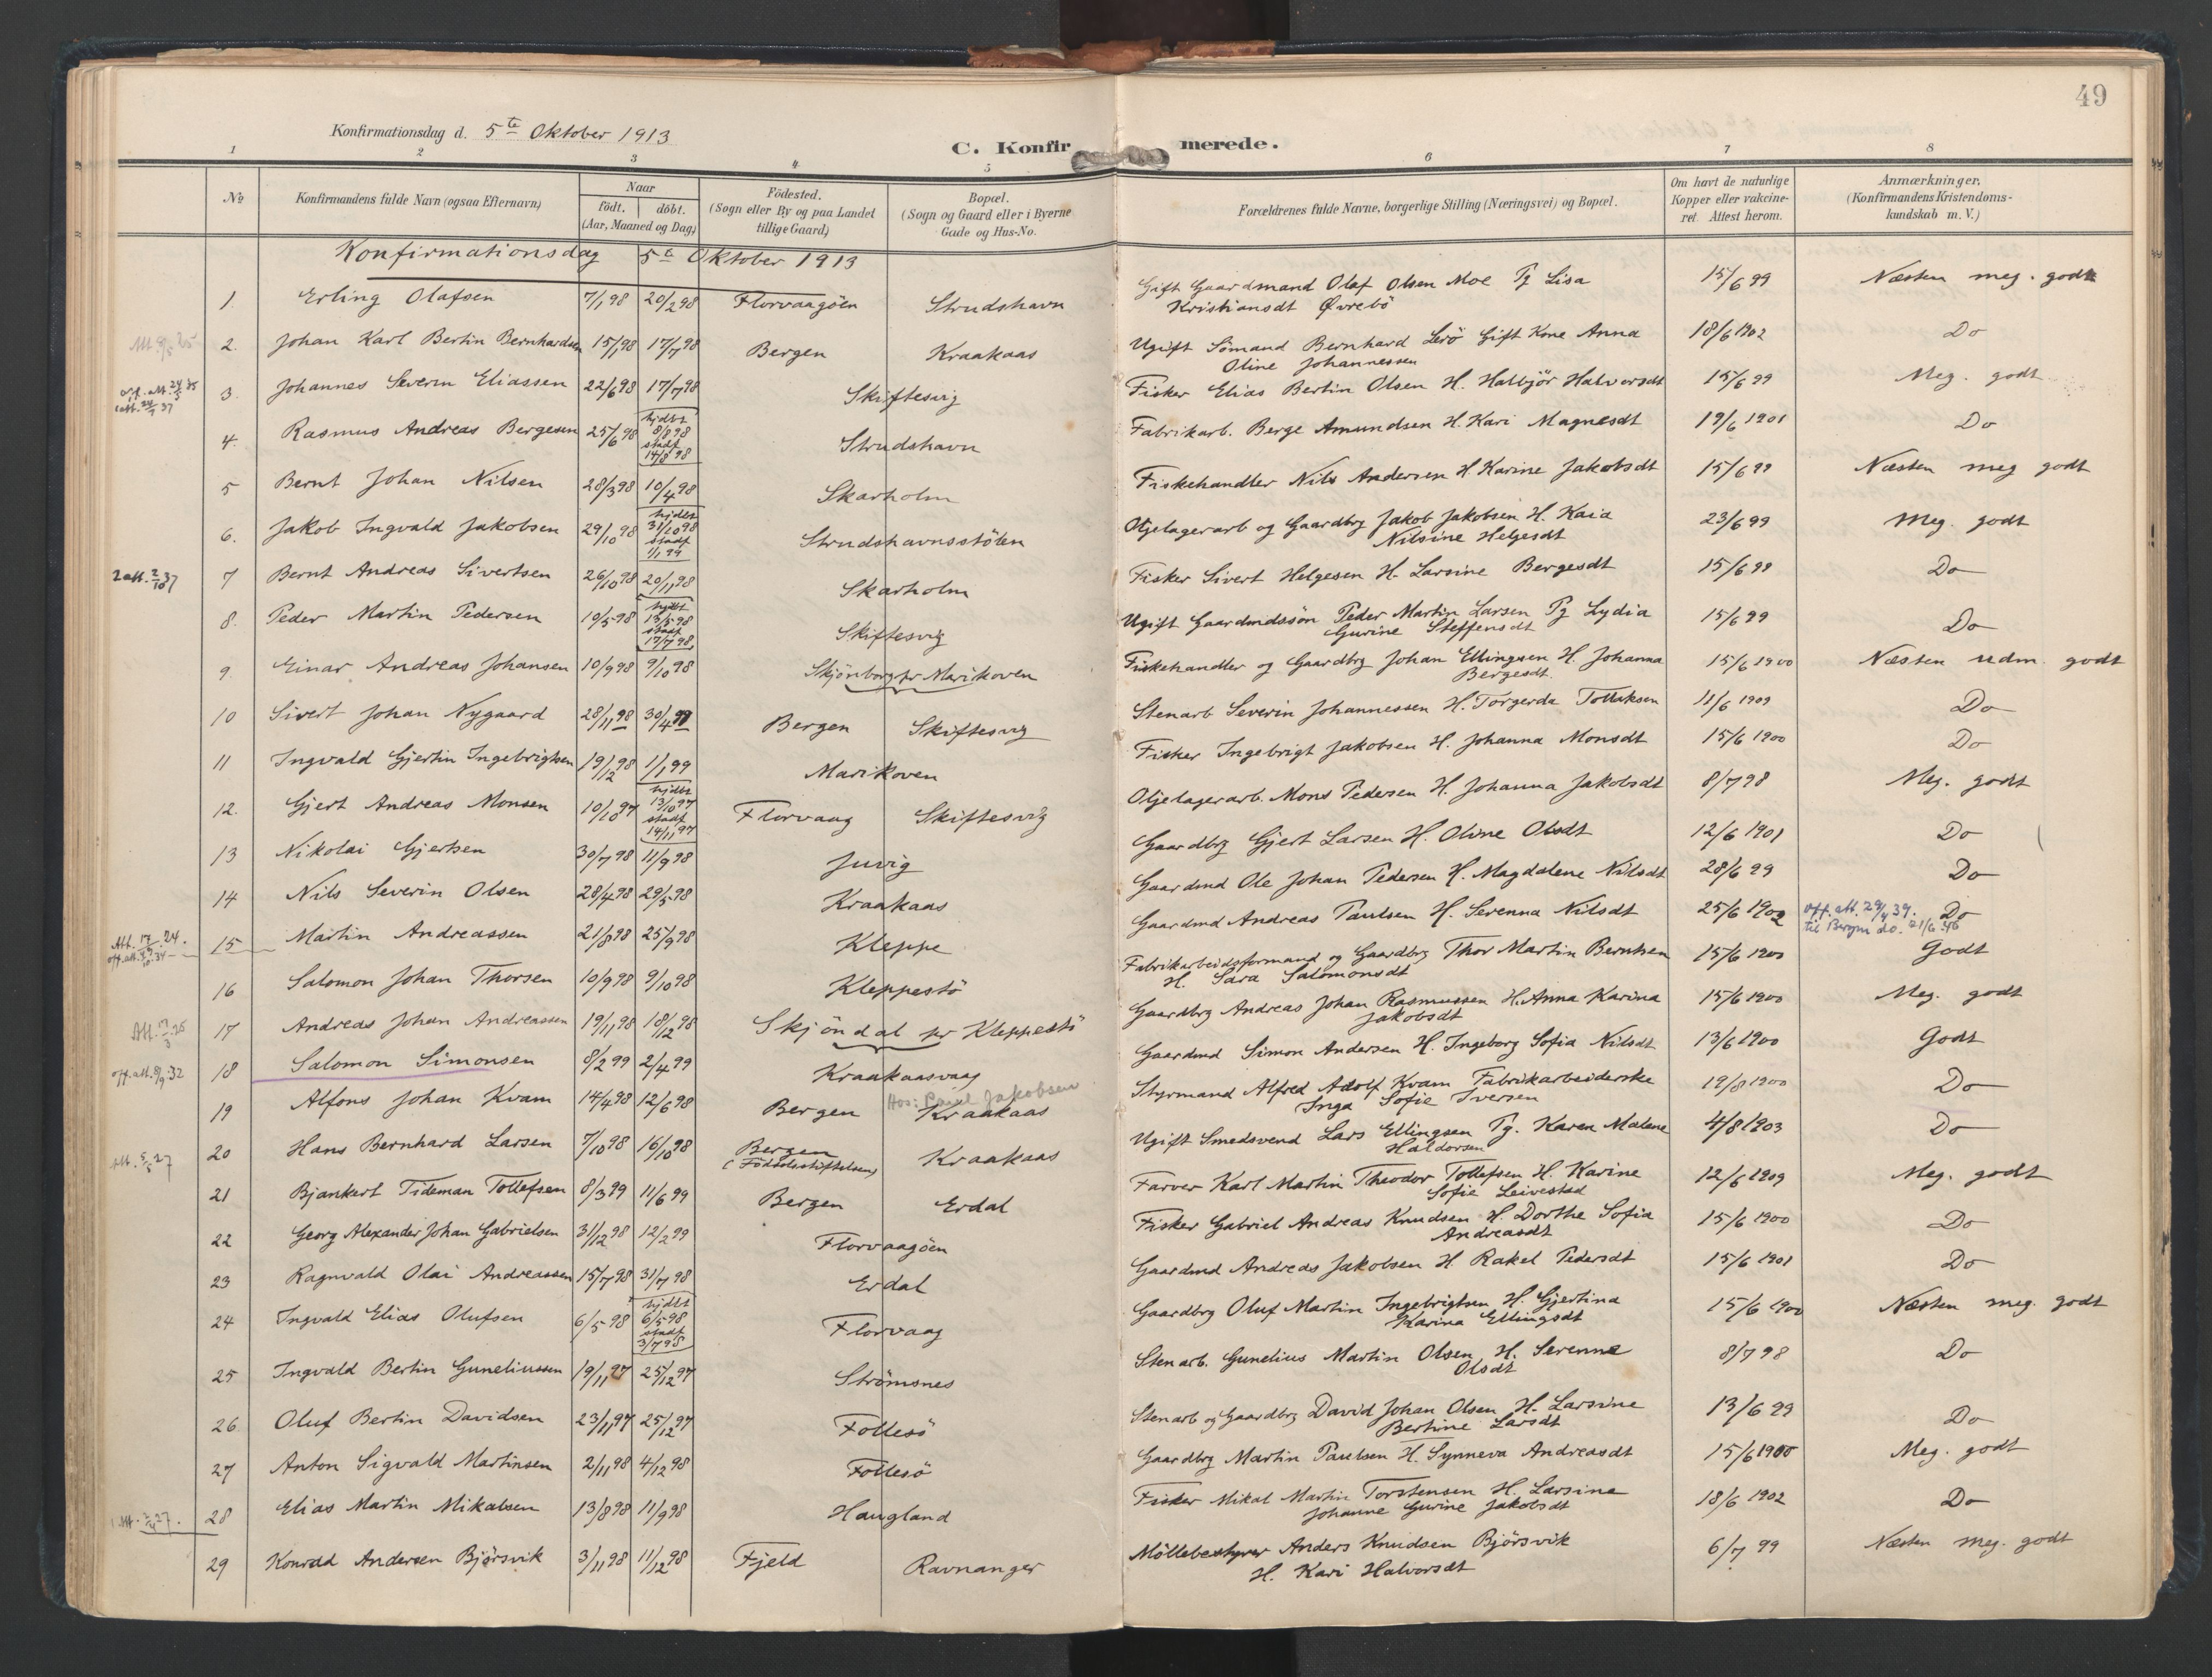 49
Konfirmationsdag d. 5te Oktober 1913
C. Konfirmerede.
1 2 3 4 5 6 7 8
No
Konfirmandens fulde Navn (ogsaa Efternavn)
Naar
födt. | döbt.
(Aar, Maaned og Dag)
Födested.
(Sogn eller By og paa Landet
tillige Gaard)
Bopæl.
(Sogn og Gaard eller i Byerne
Gade og Hus-No.
Forældrenes fulde Navne, borgerlige Stilling (Næringsvei) og Bopæl.
Om havt de naturlige
Kopper eller vakcine-
ret. Attest herom.
Anmærkninger,
(Konfirmandens Kristendoms-
kundskab m. V.)
Konfirmationsdag 5te Oktober 1913
1. Erling Olafsen 7/1 98 20/2 98 Florvaagöen Strudshavn Gift Gaardmand Olaf Olsen Moe Pg Lisa 15/6 99 Næsten meg. godt
Kristiansdt Øvrebö
2. Johan Karl Bertin Bernhardsen 15/1 98 17/7 98 Bergen Kraakaas Ugift Sömand Bernhard Lerö Gift Kone Anna 18/6 1902 Do
Oline Johannessen
off. att. 24/5 35
1 att. 24/1 37
3. Johannes Severin Eliassen 22/6 98 17/7 98 Skiftesvig Fisker Elias Bertin Olsen H. Halbjör Halvorsdt 15/6 99 Meg. godt
4. Rasmus Andreas Bergesen 25/6 98 hjdbt 8/8 98 stadf 14/8 98 Strudshavn Fabrikarb. Berge Amundsen H. Kari Magnesdt 19/6 1901 Do
5 Bernt Johan Nilsen 28/3 98 10/4 98 Skarholm Fiskehandler Nils Andersen H Karine Jakobsdt 15/6 99 Næsten meg godt
6. Jakob Ingvald Jakobsen 29/10 98 hjdbt 31/10 98 stadf 1/1 99 Strudshavnsstölen Oljelagerarb og Gaardbrg Jakob Jakobsen H. Kaia 23/6 99 Meg. godt
Nilsine Helgesdt
2 att. 2/10 37
7 Bernt Andreas Sivertsen 26/10 98 20/11 98 Skarholm Fisker Sivert Helgesen H. Larsine Bergesdt 15/6 99 Do
8. Peder Martin Pedersen 10/5 98 hjdbt 13/5 98 stadf 17/7 98 Skiftesvig Ugift Gaardmdssön Peder Martin Larsen Pg Lydia 15/6 99 Do
Gurine Steffensdt
9. Einar Andreas Johansen 10/9 98 9/10 98 Skjönborg pr Marikoven Fiskehandler og Gaardbrg Johan Ellingsen H. Johanna 15/6 1900 Næsten udm. godt
Bergesdt.
10 Sivert Johan Nygaard 28/11 98 30/4 99 Bergen Skiftesvig Stenarb Severin Johannessen H. Torgerda Tollaksen 11/6 1909 Do
11 Ingvald Gjertin Ingebrigtsen 19/12 98 1/1 99 Marikoven Fisker Ingebrigt Jakobsen H. Johanna Monsdt 15/6 1900 Do
12. Gjert Andreas Monsen 10/10 97 hjdbt 13/10 97 stadf 14/11 97 Florvaag Skiftesvig Oljelagerarb. Mons Pedersen H. Johanna Jakobsdt 8/7 98 Meg. godt
13 Nikolai Gjertsen 30/7 98 11/9 98 Juvig Gaardbrg Gjert Larsen H. Oline Olsdt 12/6 1901 Do
14 Nils Severin Olsen 28/4 98 29/5 98 Kraakaas Gaardmd Ole Johan Pedersen H. Magdalene Nilsdt 28/6 99 Do
Att. 17/9 24.
15 Martin Andreassen 21/8 98 25/9 98 Kleppe Gaardmd Andreas Paulsen H. Serenna Nilsdt 25/6 1902 off. att. 29/4 39. Do
til Bergen do. 21/6 46
16 Salomon Johan Thorsen 10/9 98 9/10 98 Kleppestö Fabrikarbeidsformand og Gaardbrg Thor Martin Berntsen 15/6 1900 Godt
H. Sara Salomonsdt
17 Andreas Johan Andreassen 19/11 98 18/12 98 Skjöndal pr Kleppestö Gaardbrg Andreas Johan Rasmussen H. Anna Karina 15/6 1900 Meg. godt
Jakobsdt
off. att. 8/9 32
18 Salomon Simonsen 8/2 99 2/4 99 Kraakaasvaag Gaardmd Simon Andersen H. Ingeborg Sofia Nilsdt 13/6 1900 Godt
Hos: Jakobsen
19 Alfons Johan Kvam 14/4 98 12/6 98 Bergen Kraakaas Styrmand Alfred Adolf Kvam Fabrikarbeiderske 19/8 1900 Do
Inga Sofie Iversen
20 Hans Bernhard Larsen 7/10 98 16/10 98 Bergen (Födselsstiftelsen) Kraakaas Ugift Smedsvend Lars Ellingsen Pg. Karen Malene 4/8 1903 Do
Haldorsen
21 Bjankert Tideman Tollefsen 8/3 99 11/6 99 Bergen Erdal Farver Karl Martin Theodor Tollefsen H. Karine 12/6 1909 Meg. godt
Sofie Leivestad
22 Georg Alexander Johan Gabrielsen 31/12 98 12/2 99 Florvaagöen Fisker Gabriel Andreas Knudsen H. Dorthe Sofia 15/6 1900 Do
Andreasdt
23 Ragnvald Olai Andreassen 15/7 98 31/7 98 Erdal Gaardmd Andreas Jakobsen H Rakel Pedersdt 15/6 1901 Do
24 Ingvald Elias Olufsen 6/5 98 hjdbt 6/5 98 stadf 3/7 98 Florvaag Gaardbrg Oluf Martin Ingebrigtsen H. Gjertina 15/6 1900 Næsten meg. godt
Karina Ellingsdt
25 Ingvald Bertin Guneliussen 19/11 97 25/12 97 Strömsnes Stenarb. Gunelius Martin Olsen H. Serenne 8/7 98 Do
Olsdt
26. Oluf Bertin Davidsen 23/11 97 25/12 97 Follesö Stenarb og Gaardbrg David Johan Olsen H. Larsine 13/6 99 Do
Bertine Larsdt
27 Anton Sigvald Martinsen 2/11 98 4/12 98 Follesö Gaardbrg Martin Paulsen H. Synneva Andreasdt 15/6 1900 Meg. godt
28 Elias Martin Mikalsen 13/8 98 11/9 98 Haugland Fisker Mikal Martin Torstensen H. Larsine 18/6 1902 Do
Johanne Gurine Jakobsdt
29 Konrad Andersen Bjørsvik 3/11 98 11/12 98 Fjeld Ravnanger Möllebestyrer Anders Knudsen Björsvik 6/7 99 Næsten meg. godt
H. Kari Halvorsdt